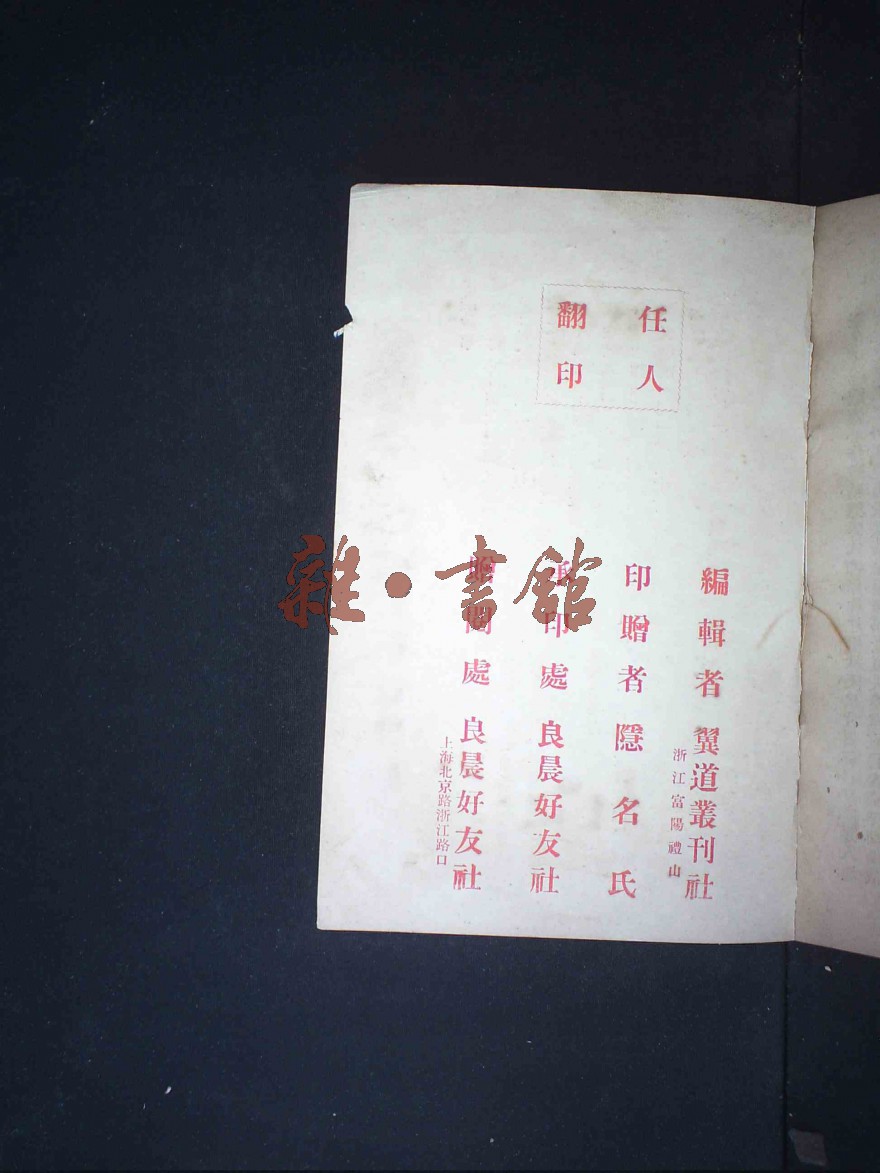 任人
翻印
編輯者 翼道叢刊社
浙江富陽禮山
印贈者 隱名氏
承印處 良晨好友社
贈閱處 良晨好友社
上海北京路浙江路口
雜·書館